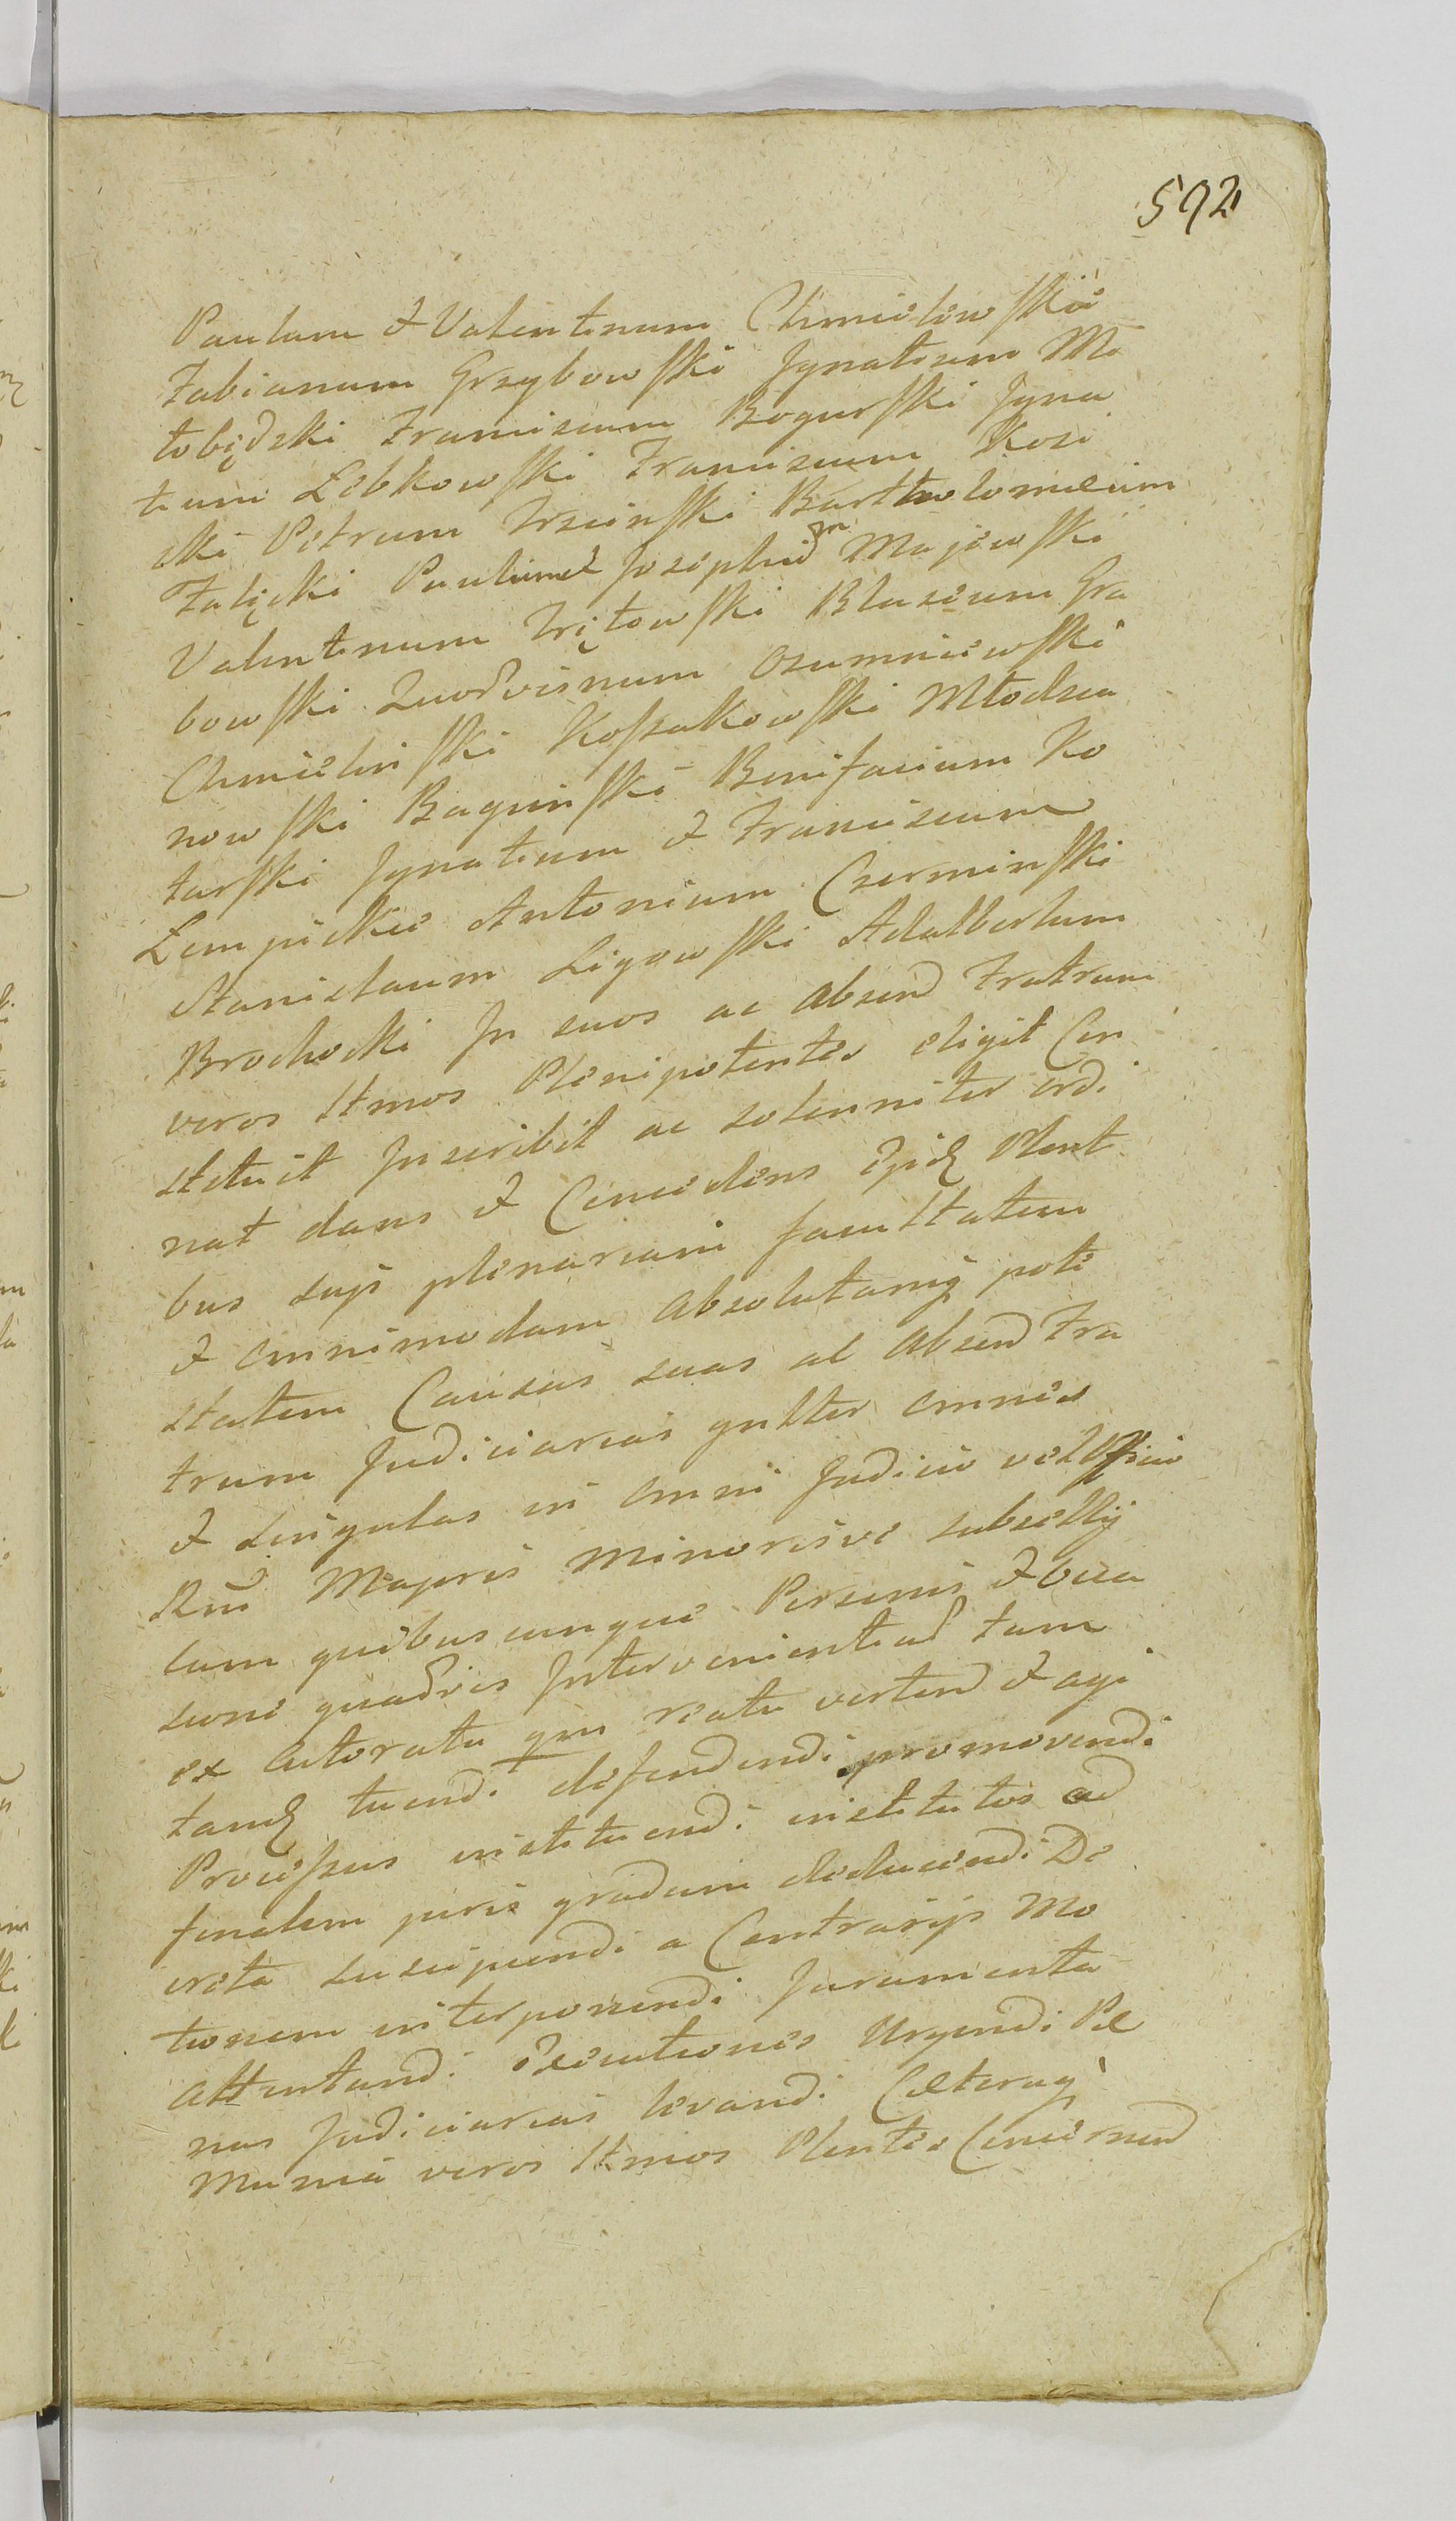 592
Paulum & Valentinum Chmielewskie
Fabianum Grzybowski Ignatium Mo
tobędzki Franciscum Bogurski Igna
tium Lebkowski Franciscum Kosi
cki Petrum Trzcinski Bartholomeum
Falęcki Paulum & Josephum Majewski
Valentinum Trętowski Blasium Gra
bowski Ludovicum Ozumniewski
Chmielinski Kossakowski Młodzia
nowski Baginski Bonifacium Ko
tarski Ignatium & Franciscum
Lempickie Antonium Czerminski
Stanislaum Ligowski Adalbertum
Brochocki In suos ac absend Fratrum
veros ltmos Plenipotentes eligit Con
stituit Inscribit ac solenniter ordi
nat dans & Concedens Plent
bus suis plenariam facultatem
& omnimodam absolutamq pote
statem Causas suas ac absend Fra
trum Judiciarias gnlter omnes
& singulas in omni Judicio vel Officio
Rni Majoris Minorisve subsellij
cum quibuscunque Personis & occa
sione quadvis Intervenientead tam
ex actoratu qm reatu vertend & agi
tand tuendi defendendi promovendi
Processus instituendi institutos ad
finalem juris gradum deducendi De
creta suscipiendi a Contrarijs Mo
tionem interponendi Juramenta
attentandi Executiones Urgendi Pæ
nas Judiciarias levandi Cæteraq
Munia veros ltmos Plentes Concernend